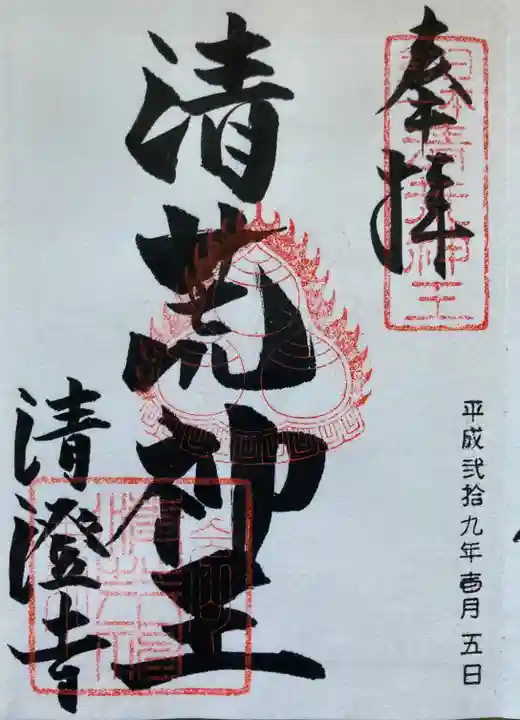 奉拝
清荒神王
清澄寺
平成弐拾九年壱月五日